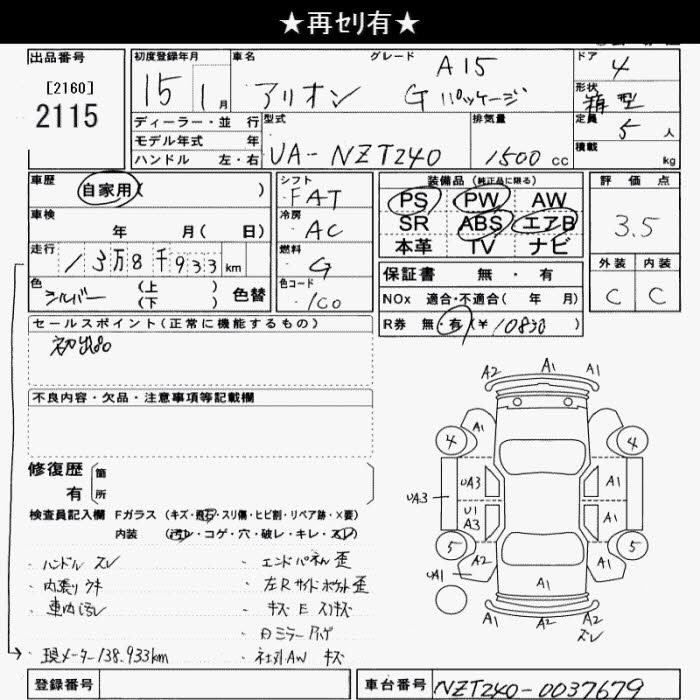 ★再ｾﾘ有★
出品番号
[2160]
2115
初度登録年月
15 1月
車名
アリオン
グレード
A15
Gパッケージ
ドア
4
形状
箱型
定員
5人
積載
kg
ディーラー・並行
モデル年式 年
ハンドル 左・右
型式
UA-NZT240
排気量
1500cc
車歴
自家用( )
車検
年 月( 日)
走行
13万8千933km
色
シルバー
(上 )
(下 )
色替
シフト
FAT
冷房
AC
燃料
G
色コード
1C0
装備品(純正品に限る)
PS PW AW
SR ABS エアB
本革 TV ナビ
保証書 無・有
NOx 適合・不適合( 年 月)
R券 無・有(¥10830)
評価点
3.5
外装 内装
C C
セールスポイント(正常に機能するもの)
初出品
不良内容・欠品・注意事項等記載欄
修復歴
有
箇所
検査員記入欄 Fガラス (キズ・飛石・スリ傷・ヒビ割・リペア跡・×要)
内装 (汚レ・コゲ・穴・破レ・キレ・スレ)
・ハンドル スレ
・内張リ ウキ
・車内汚レ
・現メーター138.933km
・エンドパネル 歪
・左Rサイドポケット歪
・キズ E スリキズ
・社外AW キズ
A2 A1 A1
4 A1 4
UA3 UA3 A1
U1
A3 A1
5 A2 A1 5
UA1 A1
A1 A2 A2
スレ
登録番号
車台番号
NZT240-0037679